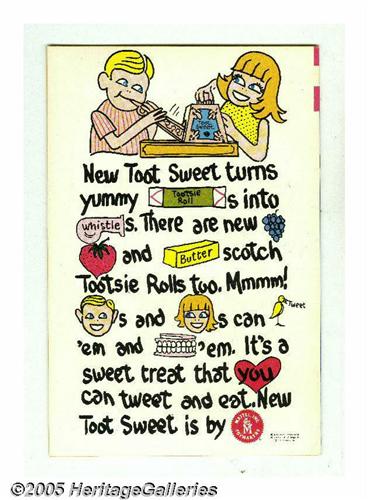 TOOT
SWEET
New Toot Sweet turns
yummy Tootsie Roll s into
whistle s. There are new
and Butter scotch
Tootsie Rolls too. Mmmm!
Tweet
's and 's can
'em and 'em. It's a
sweet treat that you
can tweet and eat. New
Toot Sweet is by MATTEL, INC. M TOYMAKERS
©2005 HeritageGalleries